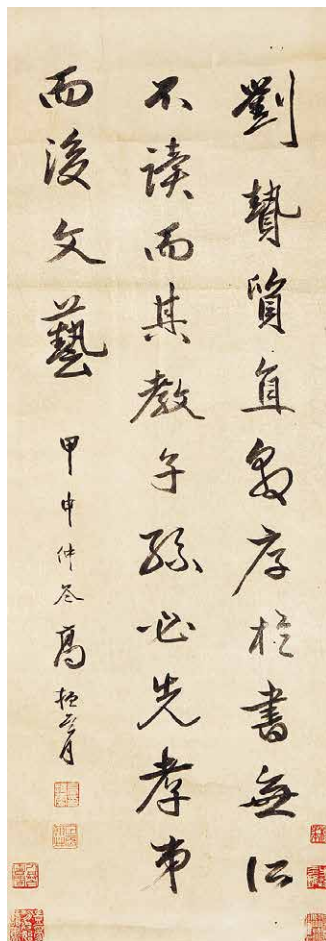 劉贄質直敦厚於書無所
不讀而其教子孫必先孝弟
而後文藝
甲申仲冬高振霄